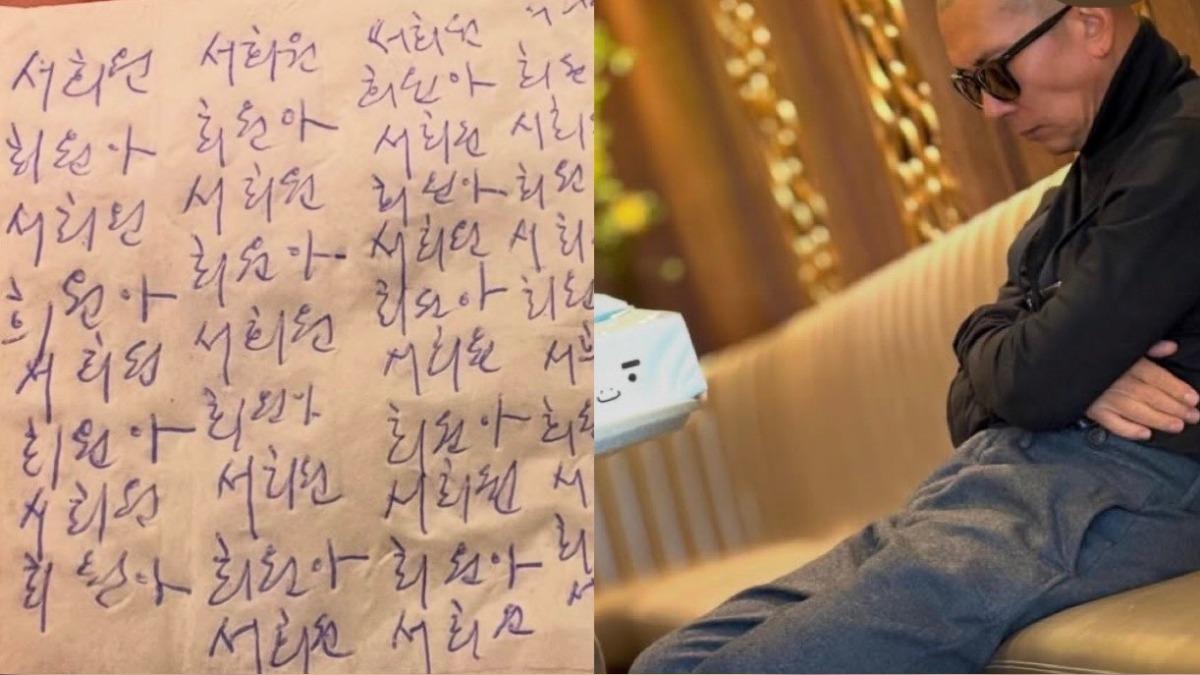 서희원
희원아
서희원
희원아
서희원
희원아
서희원
희원아
서희원
희원아
서희원
희원아
서희원
희원아
서희원
희원아
서희원
서희원
희원아
서희원
희원아
서희원
희원아
서희원
희원아
서희원
희원아
서희원
희원
서희
희원
서희
희원
서희
희원
서
희